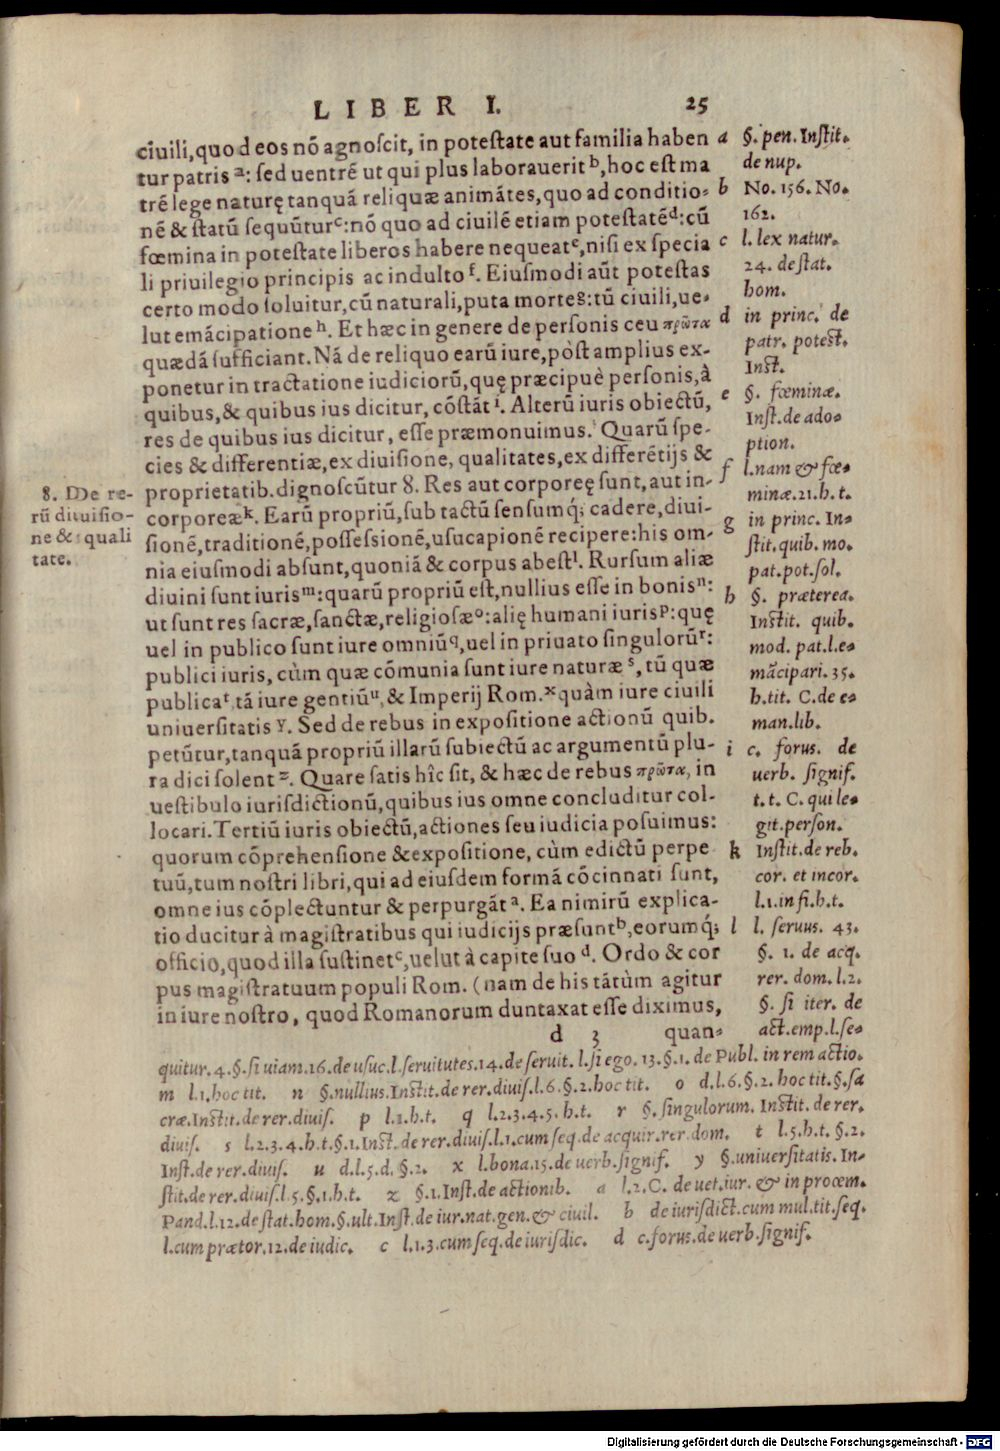 LIBER I. 25
ciuili,quod eos nõ agnoscit, in potestate aut familia haben
tur patris ª: sed uentrē ut qui plus laborauerit ᵇ,hoc est ma
trē lege naturę tanquã reliquæ animãtes,quo ad conditio-
nē & statũ sequũturᶜ:nõ quo ad ciuilē etiam potestatēᵈ:cũ
fœmina in potestate liberos habere nequeatᵉ,nisi ex specia
li priuilegio principis ac indulto ᶠ. Eiusmodi aũt potestas
certo modo soluitur,cũ naturali,puta morteᵍ:tũ ciuili,ue-
lut emãcipatione ʰ. Et hæc in genere de personis ceu πρῶτα
quædã sufficiant. Nã de reliquo earũ iure,pòst amplius ex-
ponetur in tractatione iudiciorũ,quę præcipuè personis,à
quibus,& quibus ius dicitur, cõstãt ⁱ. Alterũ iuris obiectũ,
res de quibus ius dicitur, esse præmonuimus. Quarũ spe-
cies & differentiæ,ex diuisione, qualitates,ex differētijs &
proprietatib.dignoscũtur 8. Res aut corporeę sunt, aut in-
corporeæᵏ. Earũ propriũ,sub tactũ sensumq́; cadere,diui-
sionē,traditionē,possessionē,usucapionē recipere:his om-
nia eiusmodi absunt,quoniã & corpus abestˡ. Rursum aliæ
diuini sunt iurisᵐ:quarũ propriũ est,nullius esse in bonisⁿ:
ut sunt res sacræ,sanctæ,religiosæᵒ:alię humani iurisᵖ:quę
uel in publico sunt iure omniũ𐞥,uel in priuato singulorũʳ:
publici iuris, cùm quæ cõmunia sunt iure naturæ ˢ, tũ quæ
publicaᵗ tã iure gentiũᵘ,& Imperij Rom.ˣ quàm iure ciuili
uniuersitatis ʸ. Sed de rebus in expositione actionũ quib.
petũtur,tanquã propriũ illarũ subiectũ ac argumentũ plu-
ra dici solent ᶻ. Quare satis hîc sit, & hæc de rebus πρῶτα, in
uestibulo iurisdictionũ,quibus ius omne concluditur col-
locari.Tertiũ iuris obiectũ,actiones seu iudicia posuimus:
quorum cõprehensione &expositione, cùm edictũ perpe
tuũ,tum nostri libri,qui ad eiusdem formã cõcinnati sunt,
omne ius cõplectuntur & perpurgãt ª. Ea nimirũ explica-
tio ducitur à magistratibus qui iudicijs præsuntᵇ,eorumq́;
officio,quod illa sustinetᶜ,uelut à capite suo ᵈ. Ordo & cor
pus magistratuum populi Rom. (nam de his tãtùm agitur
in iure nostro, quod Romanorum duntaxat esse diximus,
d 3 quan-
8. De re-
rũ diuisio-
ne & quali
tate.
a §. pen. Instit.
de nup.
b No. 156. No.
162.
c l. lex natur.
24. de stat.
hom.
d in princ. de
patr. potest.
Inst.
e §. fœminæ.
Inst.de ado-
ption.
f l.nam & fœ-
minæ.21.h.t.
g in princ. In-
stit.quib. mo.
pat.pot.sol.
h §. præterea.
Instit. quib.
mod. pat.l.e-
mãcipari.35.
h.tit. C.de e-
man.lib.
i c. forus. de
uerb. signif.
t.t. C. qui le-
git.person.
k Instit.de reb.
cor. et incor.
l.1.in fi.h.t.
l l. seruus. 43.
§. 1. de acq.
rer. dom.l.2.
§. si iter. de
act.emp.l.se-
quitur.4.§.si uiam.16.de usuc.l.seruitutes.14.de seruit. l.si ego. 13.§.1. de Publ. in rem actio.
m l.1.hoc tit. n §.nullius.Instit.de rer.diuis.l.6.§.2.hoc tit. o d.l.6.§.2. hoc tit.§.sa
cræ.Instit.de rer.diuis. p l.1.h.t. q l.2.3.4.5.h.t. r §.singulorum. Instit.de rer.
diuis. s l.2.3.4.h.t.§.1.Inst.de rer.diuis.l.1.cum seq.de acquir.rer.dom. t l.5.h.t. §.2.
Inst.de rer.diuis. u d.l.5.d. §.2. x l.bona.15.de uerb.signif. y §.uniuersitatis. In-
stit.de rer.diuis.l.5.§.1.h.t. z §.1.Inst.de actionib. a l.2.C. de uet.iur. & in proœm.
Pand.l.12.de stat.hom.§.ult.Inst.de iur.nat.gen.& ciuil. b de iurisdict.cum mul.tit.seq.
l.cum prætor.12.de iudic. c l.1.3.cum seq.de iurisdic. d c.forus.de uerb.signif.
Digitalisierung gefördert durch die Deutsche Forschungsgemeinschaft - DFG